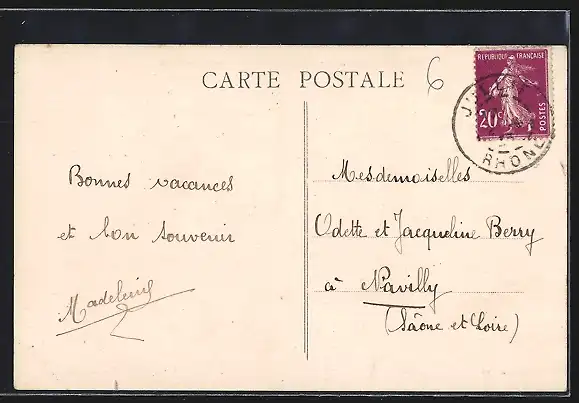 CARTE POSTALE
6
REPUBLIQUE FRANÇAISE
20c
POSTES
RHÔNE
Bonnes vacances
et bon souvenir
Madeleine
Mesdemoiselles
Odette et Jacqueline Berry
à Navilly
(Saône et Loire)